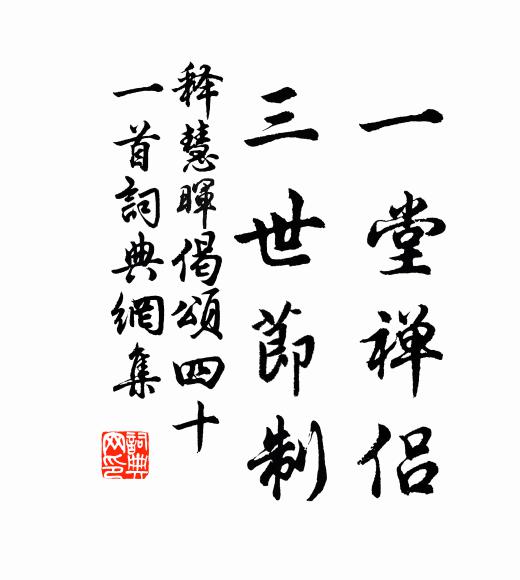 一堂禅侣
三世節制
释慧暉偈頌四十
一首詞典網集
詞典网印